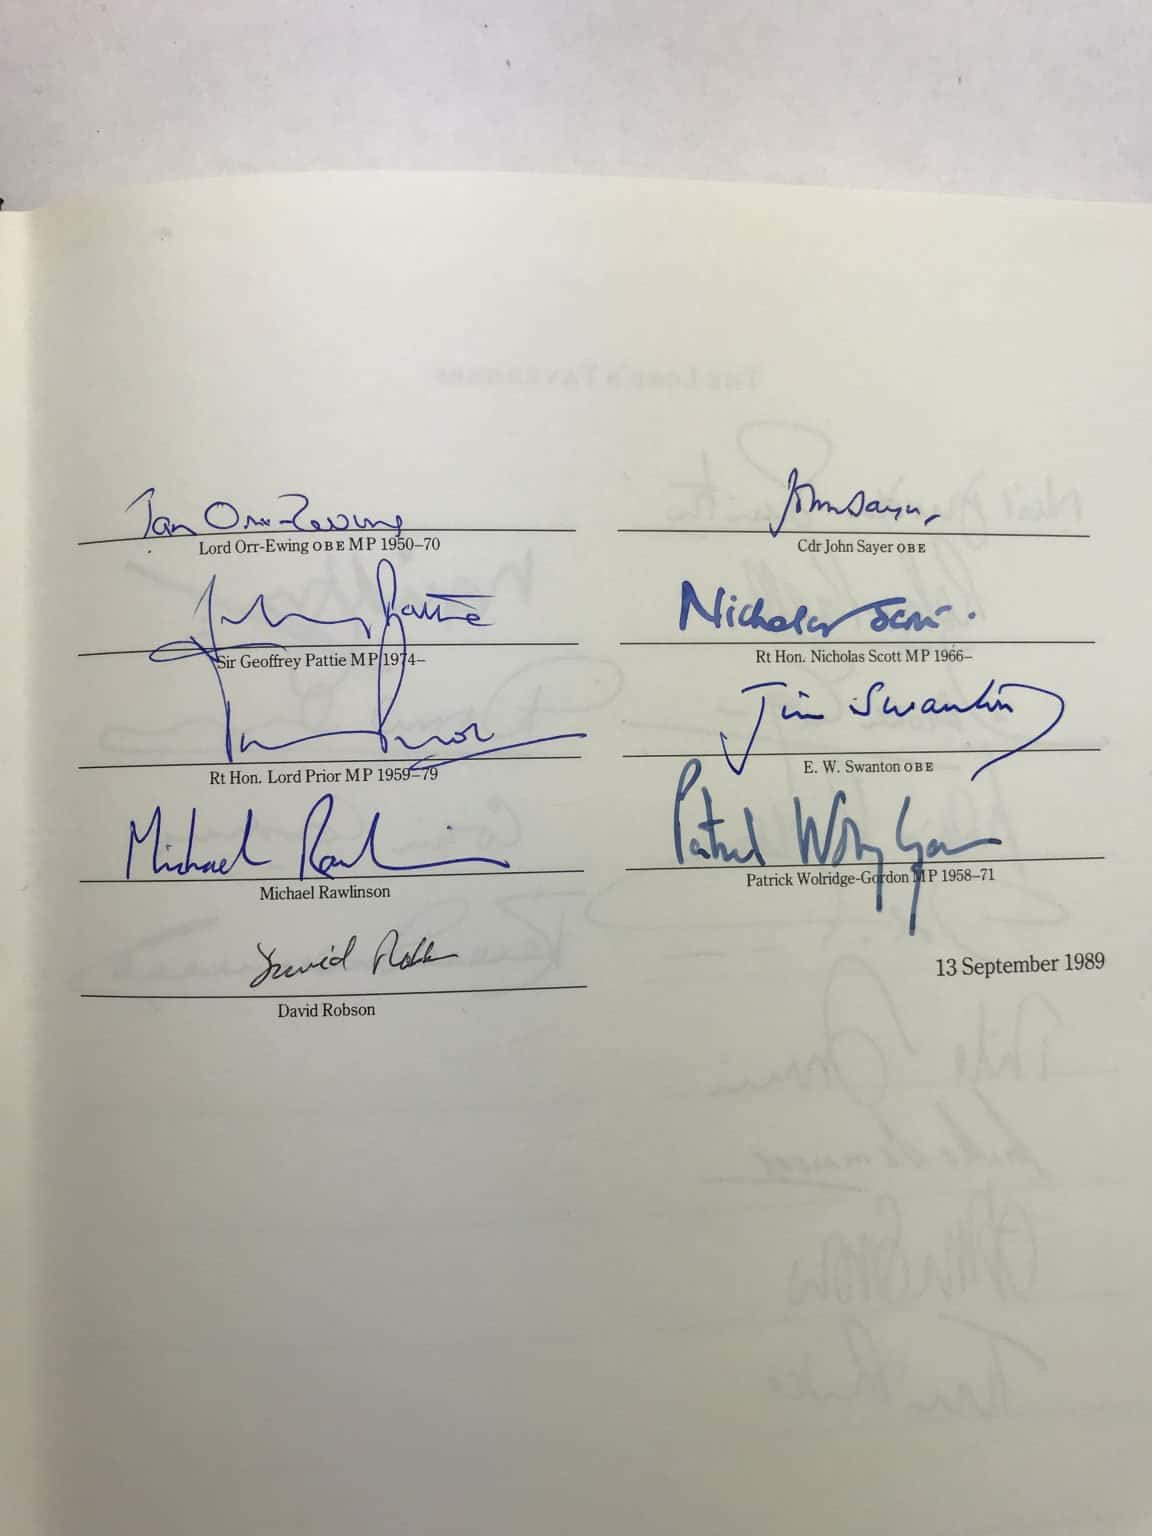 Ian Orr-Ewing
Lord Orr-Ewing OBE MP 1950–70
Geoffrey Pattie
Sir Geoffrey Pattie MP 1974–
Prior
Rt Hon. Lord Prior MP 1959–79
Michael Rawlinson
Michael Rawlinson
David Robson
David Robson
John Sayer
Cdr John Sayer OBE
Nicholas Scott.
Rt Hon. Nicholas Scott MP 1966–
Jim Swanton
E. W. Swanton OBE
Patrick Wolridge Gordon
Patrick Wolridge-Gordon MP 1958–71
13 September 1989
THE LORD'S TAVERNERS